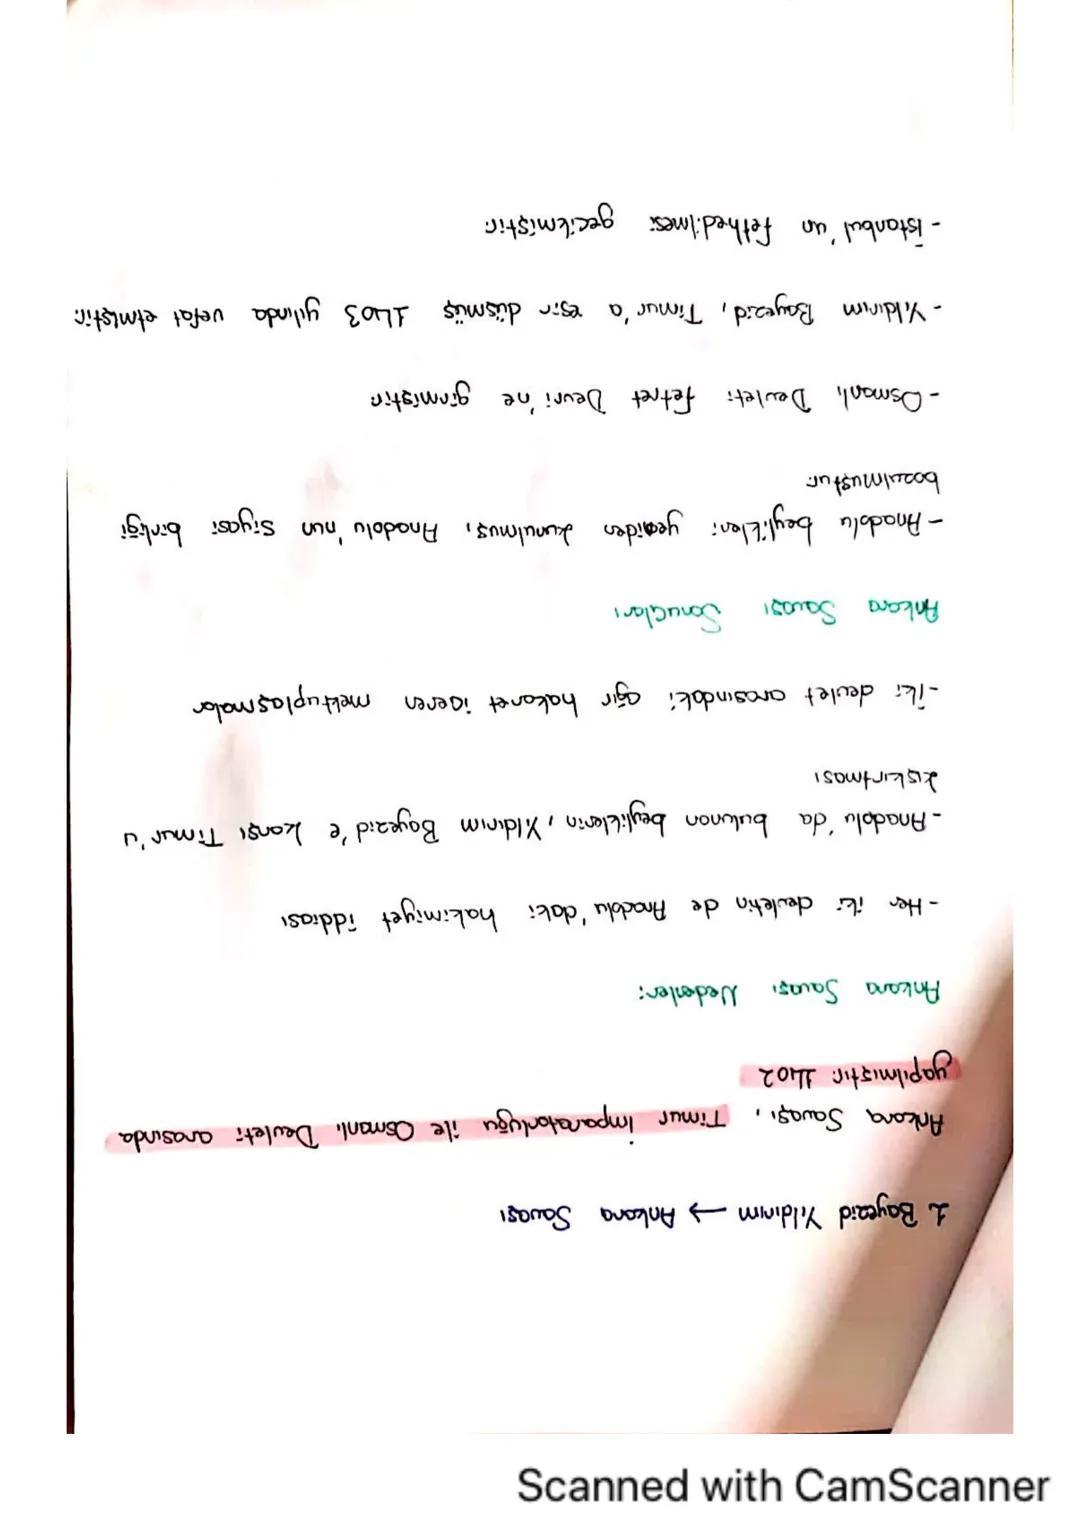 1. Bayezid Yıldırım → Ankara Savaşı
Ankara Savaşı, Timur İmparatorluğu ile Osmanlı Devleti arasında
yapılmıştır. 1402
Ankara Savaşı Nedenleri
- Her iki devletin de Anadolu'daki hakimiyet iddiası
- Anadolu'da bulunan beyliklerin, Yıldırım Bayezid'e karşı Timur'u
kışkırtması
- İki devlet arasındaki ağır hakaret içeren mektuplaşmalar
Ankara Savaşı Sonuçları
- Anadolu beylikleri yeniden kurulmuş, Anadolu'nun siyasi birliği
bozulmuştur.
- Osmanlı Devleti Fetret Devri'ne girmiştir
- Yıldırım Bayezid, Timur'a esir düşmüş 1403 yılında vefat etmiştir.
- İstanbul'un fethedilmesi gecikmiştir.
Scanned with CamScanner